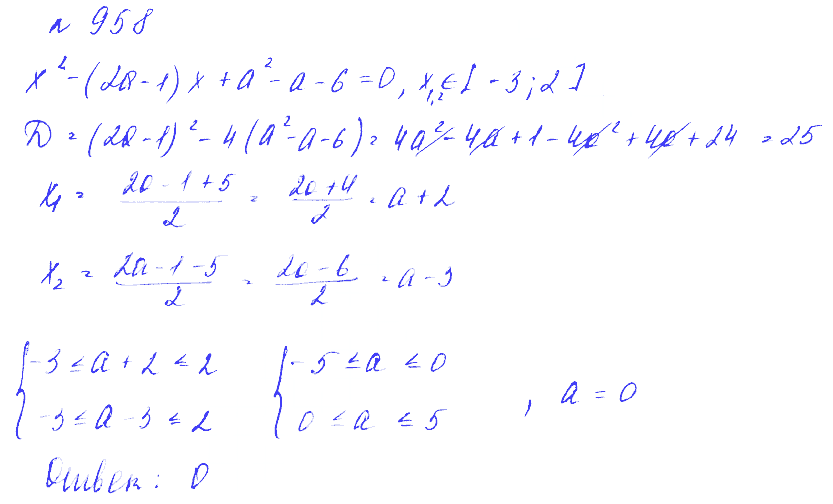 n 958
x² - (2a - 1)x + a² - a - 6 = 0, x₁,₂ ∈ [-3; 2]
D = (2a - 1)² - 4(a² - a - 6) = 4a² - 4a + 1 - 4a² + 4a + 24 = 25
x₁ = (2a - 1 + 5)/2 = (2a + 4)/2 = a + 2
x₂ = (2a - 1 - 5)/2 = (2a - 6)/2 = a - 3
{ -3 ≤ a + 2 ≤ 2 { -5 ≤ a ≤ 0
{ -3 ≤ a - 3 ≤ 2 { 0 ≤ a ≤ 5 , a = 0
Ответ: 0